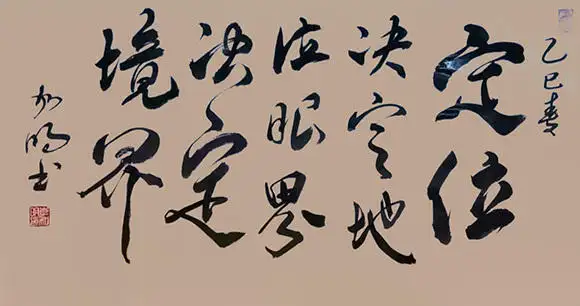 乙巳春
定位
决定地
位眼界
决定
境界
加明书